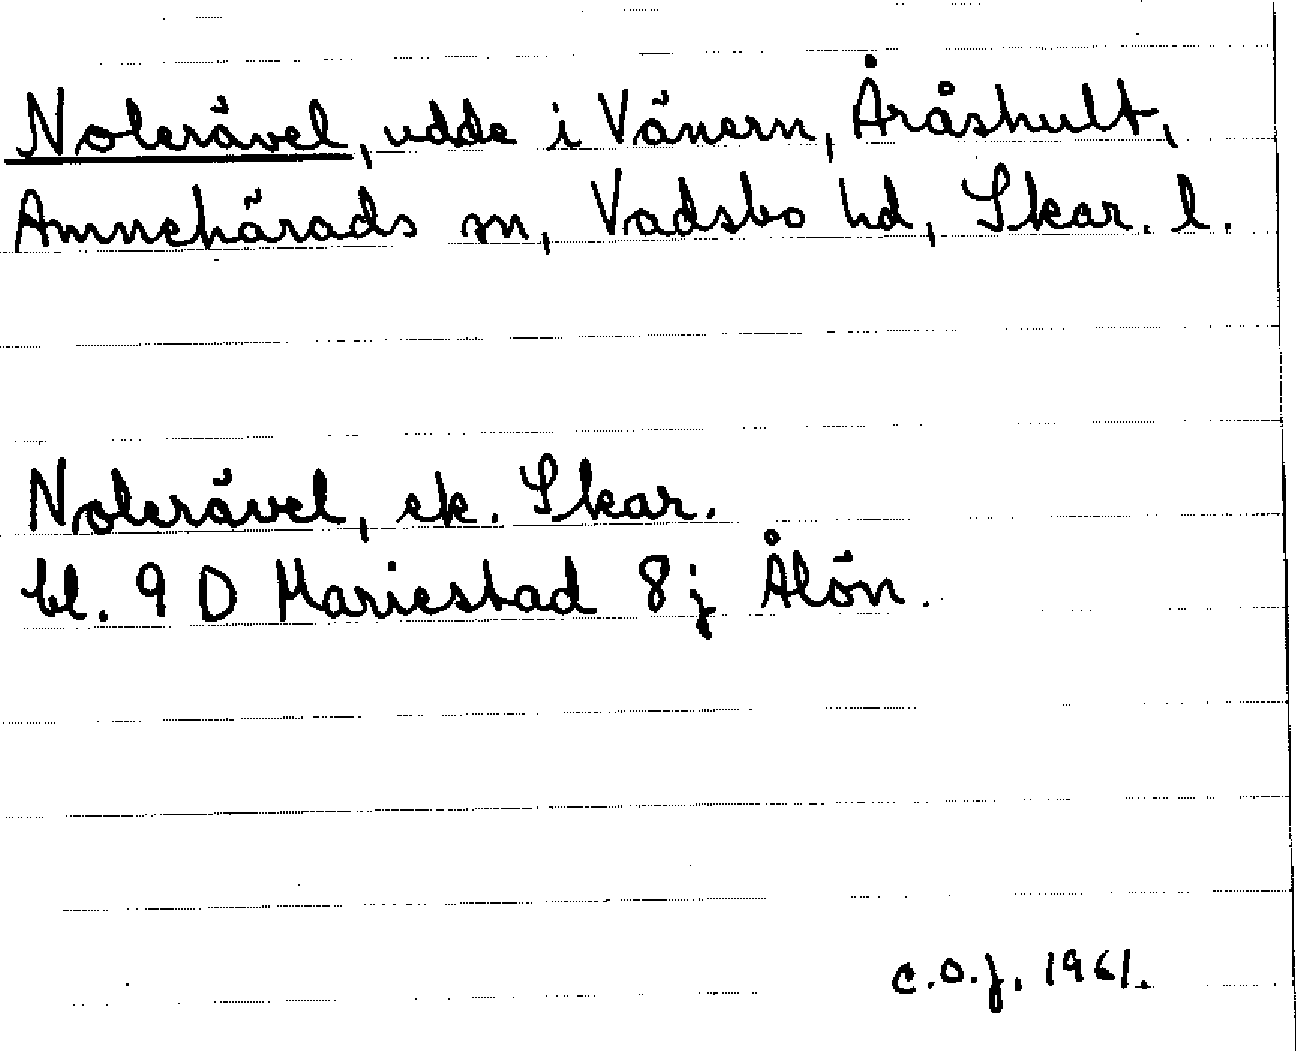 Nolerävel, udde i Vänern, Åråshult,
Amnehärads sn, Vadsbo hd, Skar. l.
Nolerävel, ek. Skar.
bl. 9 D Mariestad 8j Ålön.
C.O.J. 1961.